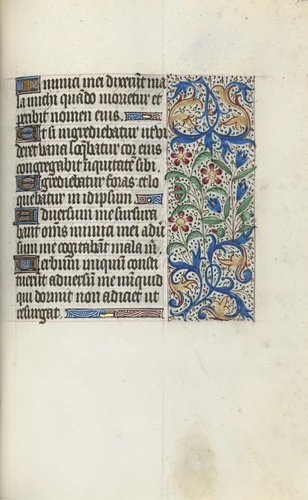 Inimici mei dixerut ma
la michi quãdo morietur et
peribit nomen eius.
Et si ingrediebatur ut vi
deret vana loq̃batur cor eius
congregabit iniquitatẽ sibi.
Egrediebatur foras et lo
quebatur in idipsum
Adversum me susurra
bant oms inimici mei adv̄
sum me cogitabãt mala m̄.
Verbum iniquũ consti
tuerut adversũ me nũquid
qui dormit non adiciet ut
resurgat